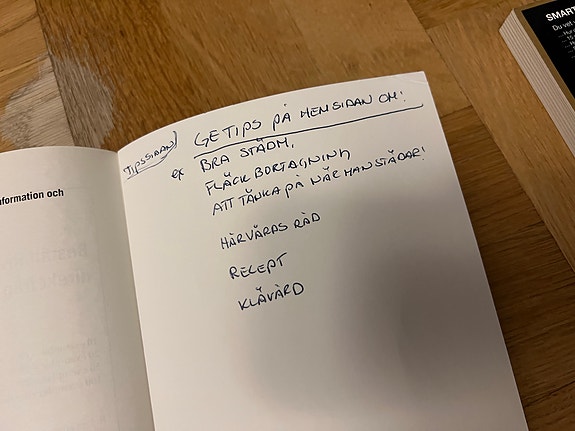 TIPSSIDAN
GE TIPS PÅ HEMSIDAN OM:
ex BRA STÄDM,
FLÄCK BORTAGNING,
ATT TÄNKA PÅ NÄR MAN STÄDAR!
HÅRVÅRDS RÅD
RECEPT
KLÄVÅRD
nformation och
SMART
Du vet